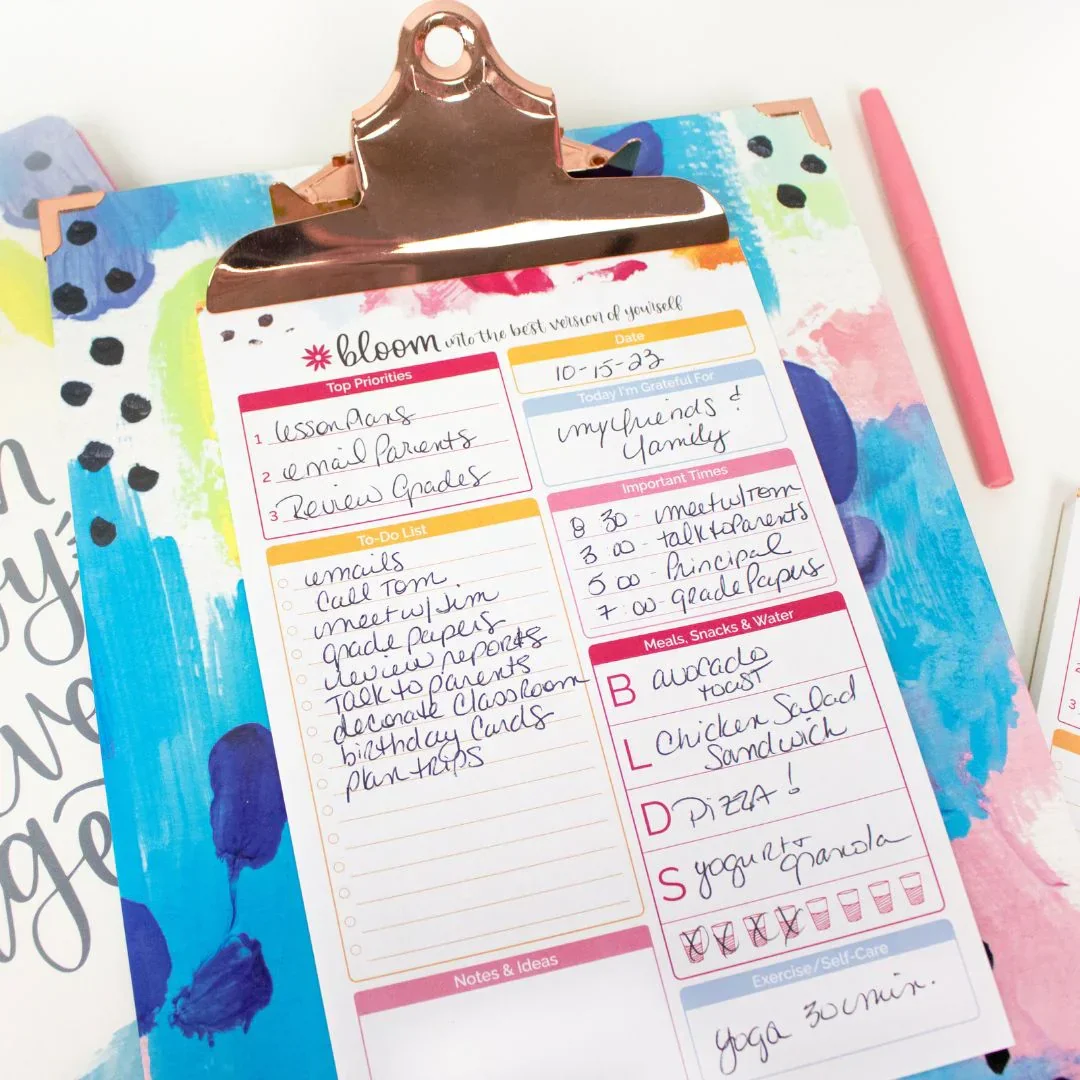 bloom into the best version of yourself
Top Priorities
1 lesson Plans
2 email Parents
3 Review Grades
Date
10-15-23
Today I'm Grateful For
my friends &
family
To-Do List
emails
Call Tom.
meet w/ Jim
grade papers
review reports
Talk to parents
decorate classroom
birthday Cards
plan trips
Important Times
8 30 - meet w/ Tom
3 00 - talk to Parents
5 00 - Principal
7:00 - grade Papers
Meals, Snacks & Water
B avocado
toast
L Chicken Salad
Sandwich
D Pizza!
S yogurt +
granola
Notes & Ideas
Exercise/Self-Care
yoga 30 min.
3